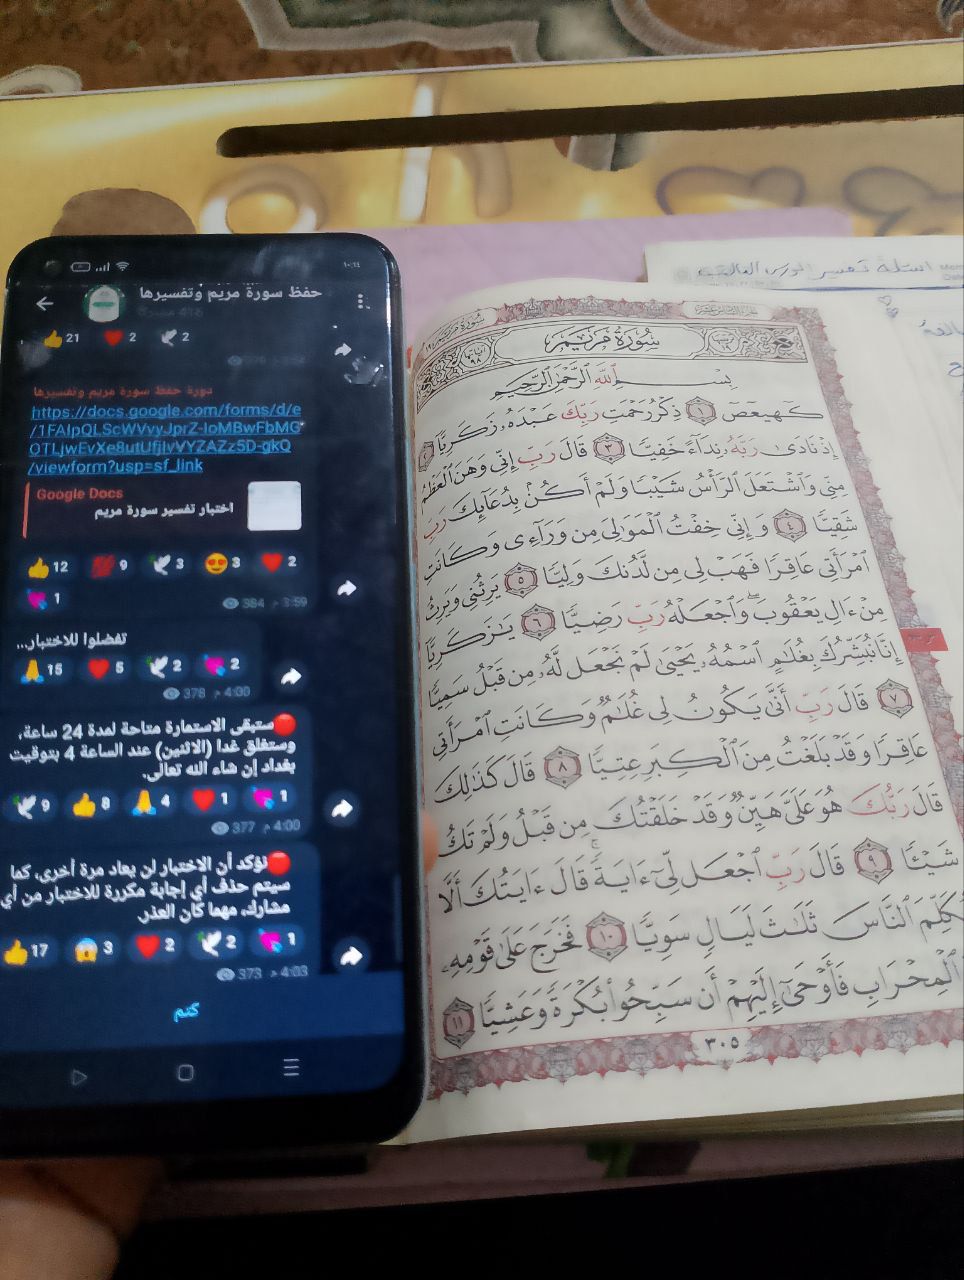 حفظ سورة مريم وتفسيرها
21 2 2
دورة حفظ سورة مريم وتفسيرها
https://docs.google.com/forms/d/e
/1FAIpQLScWVvyJprZ-IoMBwFbMG
OTLjwEvXe8utUfjIvVYZAZz5D-gkQ
/viewform?usp=sf_link
Google Docs
اختبار تفسير سورة مريم
12 9 3 3 2
1
384 3:59 م
تفضلوا للاختبار...
15 5 2 2
378 4:00 م
ستبقى الاستمارة متاحة لمدة 24 ساعة،
وستغلق غدا (الاثنين) عند الساعة 4 بتوقيت
بغداد إن شاء الله تعالى.
9 8 4 1 1
377 4:00 م
نؤكد أن الاختبار لن يعاد مرة أخرى، كما
سيتم حذف أي إجابة مكررة للاختبار من أي
مشارك، مهما كان العذر.
17 3 2 2 1
373 4:03 م
كتم
اسئلة تفسير
سُورَةُ مَرْيَمَ
بِسْمِ اللَّهِ الرَّحْمَنِ الرَّحِيمِ
كٓهيعٓصٓ ١ ذِكْرُ رَحْمَتِ رَبِّكَ عَبْدَهُۥ زَكَرِيَّآ ٢
إِذْ نَادَىٰ رَبَّهُۥ نِدَآءً خَفِيًّا ٣ قَالَ رَبِّ إِنِّي وَهَنَ ٱلْعَظْمُ
مِنِّي وَٱشْتَعَلَ ٱلرَّأْسُ شَيْبًا وَلَمْ أَكُنۢ بِدُعَآئِكَ رَبِّ
شَقِيًّا ٤ وَإِنِّي خِفْتُ ٱلْمَوَٰلِيَ مِن وَرَآءِي وَكَانَتِ
ٱمْرَأَتِي عَاقِرًا فَهَبْ لِي مِن لَّدُنكَ وَلِيًّا ٥ يَرِثُنِي وَيَرِثُ
مِنْ ءَالِ يَعْقُوبَ وَٱجْعَلْهُ رَبِّ رَضِيًّا ٦ يَٰزَكَرِيَّآ
إِنَّا نُبَشِّرُكَ بِغُلَٰمٍ ٱسْمُهُۥ يَحْيَىٰ لَمْ نَجْعَل لَّهُۥ مِن قَبْلُ سَمِيًّا
٧ قَالَ رَبِّ أَنَّىٰ يَكُونُ لِي غُلَٰمٌ وَكَانَتِ ٱمْرَأَتِي
عَاقِرًا وَقَدْ بَلَغْتُ مِنَ ٱلْكِبَرِ عِتِيًّا ٨ قَالَ كَذَٰلِكَ
قَالَ رَبُّكَ هُوَ عَلَيَّ هَيِّنٌ وَقَدْ خَلَقْتُكَ مِن قَبْلُ وَلَمْ تَكُ
شَيْـًٔا ٩ قَالَ رَبِّ ٱجْعَل لِّيٓ ءَايَةً قَالَ ءَايَتُكَ أَلَّا
تُكَلِّمَ ٱلنَّاسَ ثَلَٰثَ لَيَالٍ سَوِيًّا ١٠ فَخَرَجَ عَلَىٰ قَوْمِهِۦ
ٱلْمِحْرَابِ فَأَوْحَىٰٓ إِلَيْهِمْ أَن سَبِّحُوا۟ بُكْرَةً وَعَشِيًّا ١١
٣٠٥